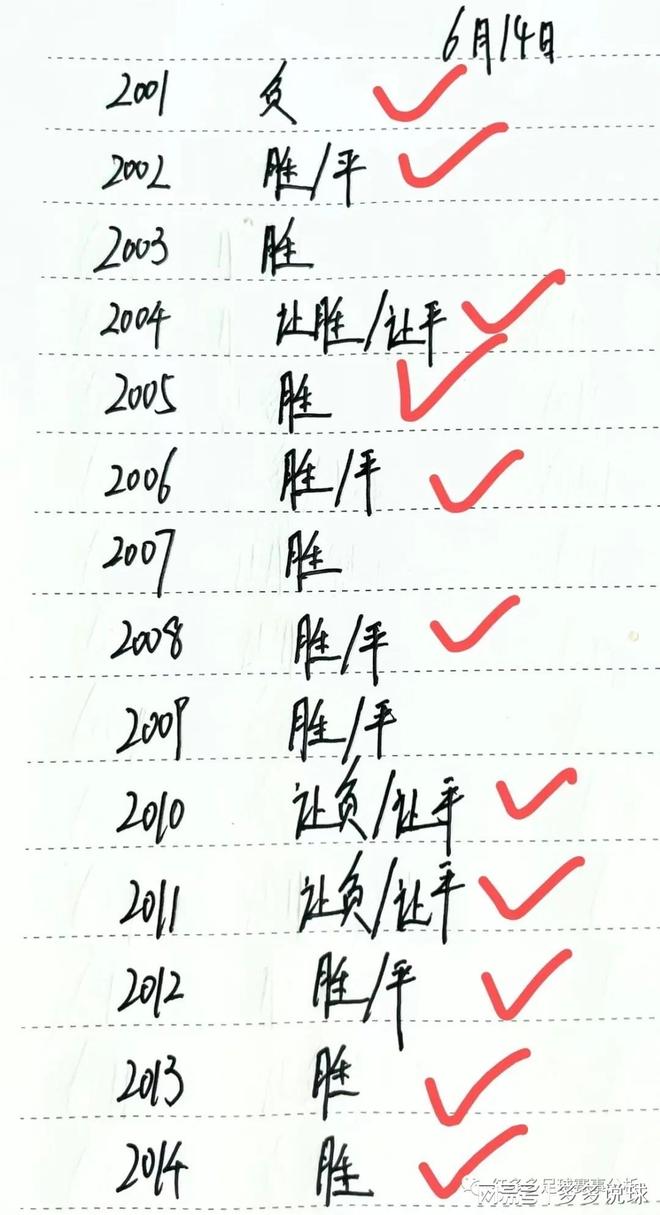 6月14日
2001 负
2002 胜/平
2003 胜
2004 让胜/让平
2005 胜
2006 胜/平
2007 胜
2008 胜/平
2009 胜/平
2010 让负/让平
2011 让负/让平
2012 胜/平
2013 胜
2014 胜
搜狐号@多多说球